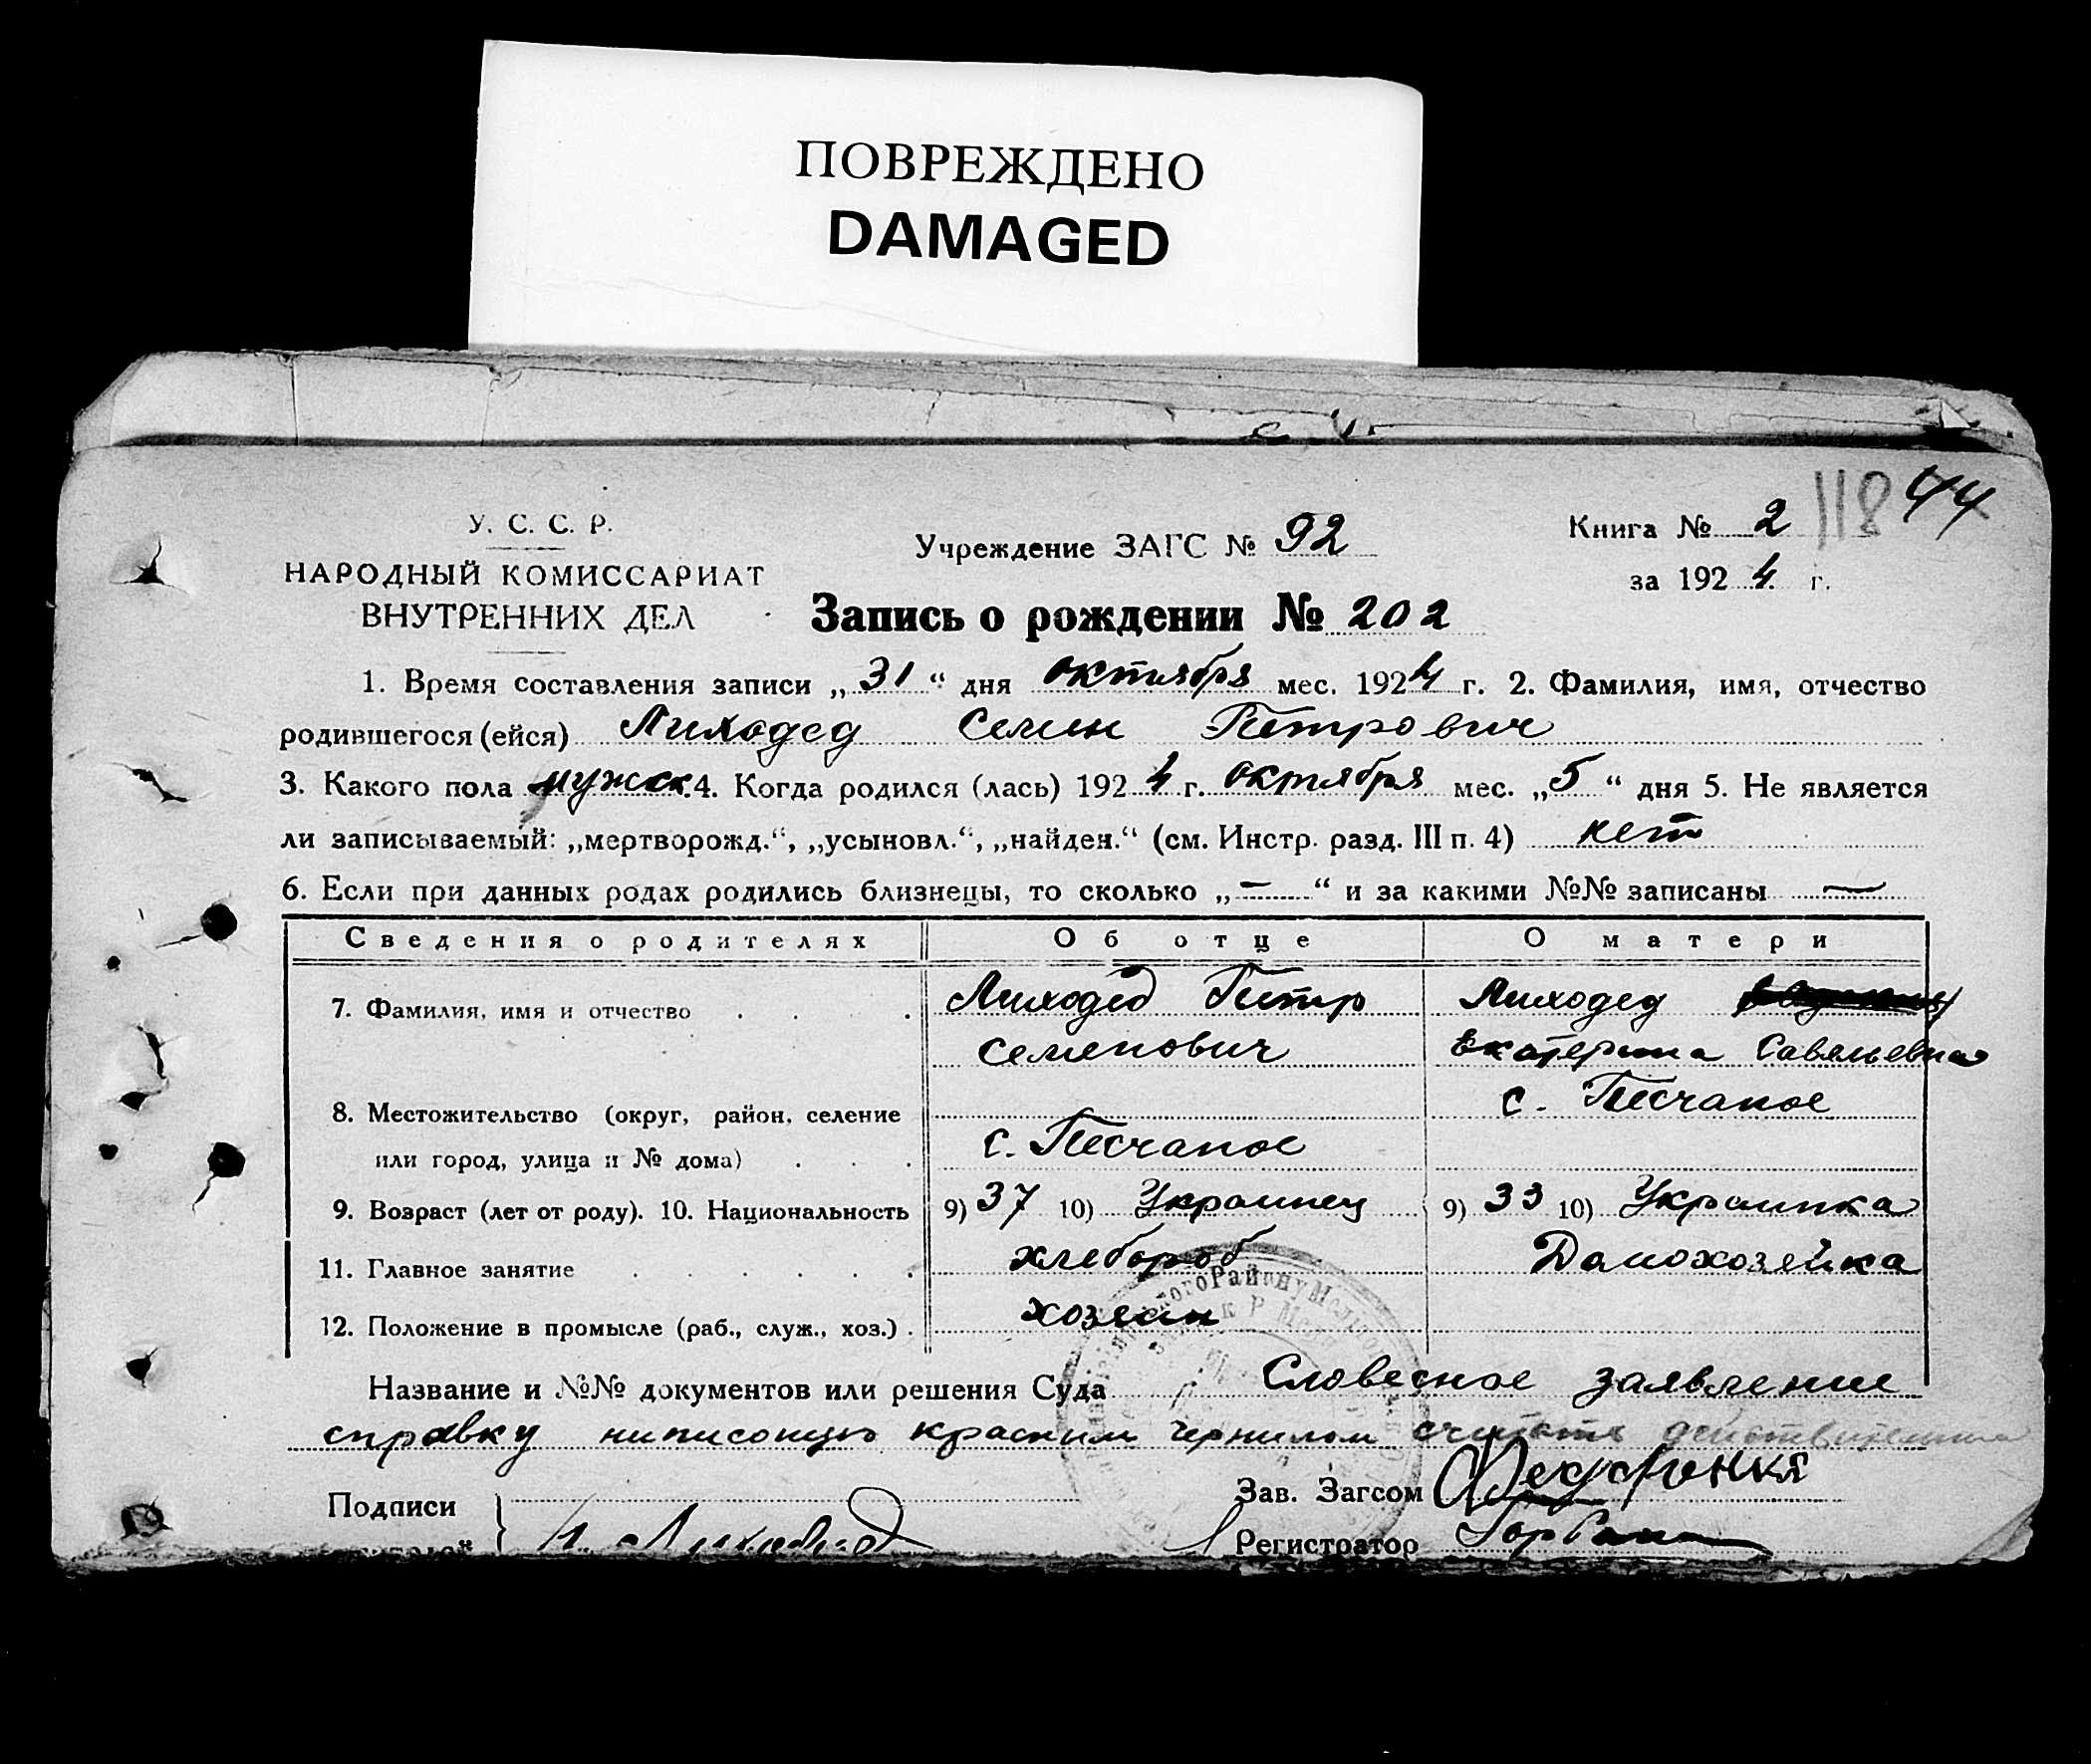 ПОВРЕЖДЕНО
DAMAGED
118 44
У. С. С. Р.
НАРОДНЫЙ КОМИССАРИАТ
ВНУТРЕННИХ ДЕЛ
Учреждение ЗАГС № 92
Книга № 2
за 1924 г.
Запись о рождении № 202
1. Время составления записи „31“ дня октября мес. 1924 г. 2. Фамилия, имя, отчество
родившегося (ейся) Лиходед Семен Петрович
3. Какого пола мужск. 4. Когда родился (лась) 1924 г. октября мес. „5“ дня 5. Не является
ли записываемый: „мертворожд.“, „усыновл.“, „найден.“ (см. Инстр. разд. III п. 4) нет
6. Если при данных родах родились близнецы, то сколько „—“ и за какими №№ записаны —
Сведения о родителях Об отце О матери
7. Фамилия, имя и отчество Лиходед Петр Лиходед
Семенович Екатерина Савельевна
8. Местожительство (округ, район, селение с. Песчаное
или город, улица и № дома) с. Песчаное
9. Возраст (лет от роду). 10. Национальность 9) 37 10) Украинец 9) 33 10) Украинка
11. Главное занятие хлебороб Домохозейка
12. Положение в промысле (раб., служ., хоз.) хозяин
Название и №№ документов или решения Суда Словесное заявление
справку красным чернилом считать
Подписи
Зав. Загсом
Регистратор